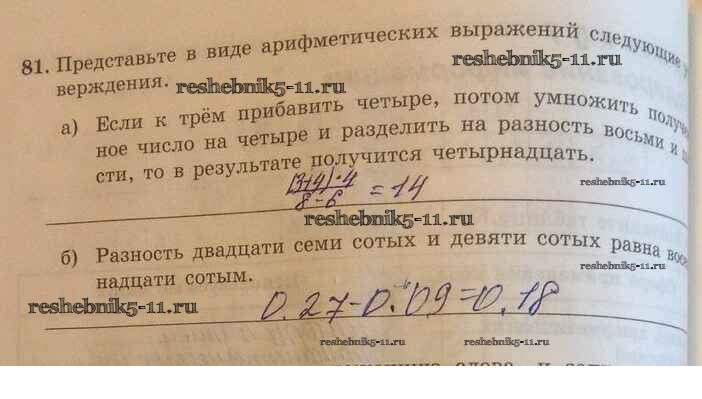 81. Представьте в виде арифметических выражений следующие
верждения.
reshebnik5-11.ru
reshebnik5-11.ru
а) Если к трём прибавить четыре, потом умножить получен
ное число на четыре и разделить на разность восьми и
сти, то в результате получится четырнадцать.
(3+4)·4
8-6
=14
reshebnik5-11.ru
reshebnik5-11.ru
б) Разность двадцати семи сотых и девяти сотых равна восем
надцати сотым.
reshebnik5-11.ru
0.27-0.09=0.18
reshebnik5-11.ru
reshebnik5-11.ru